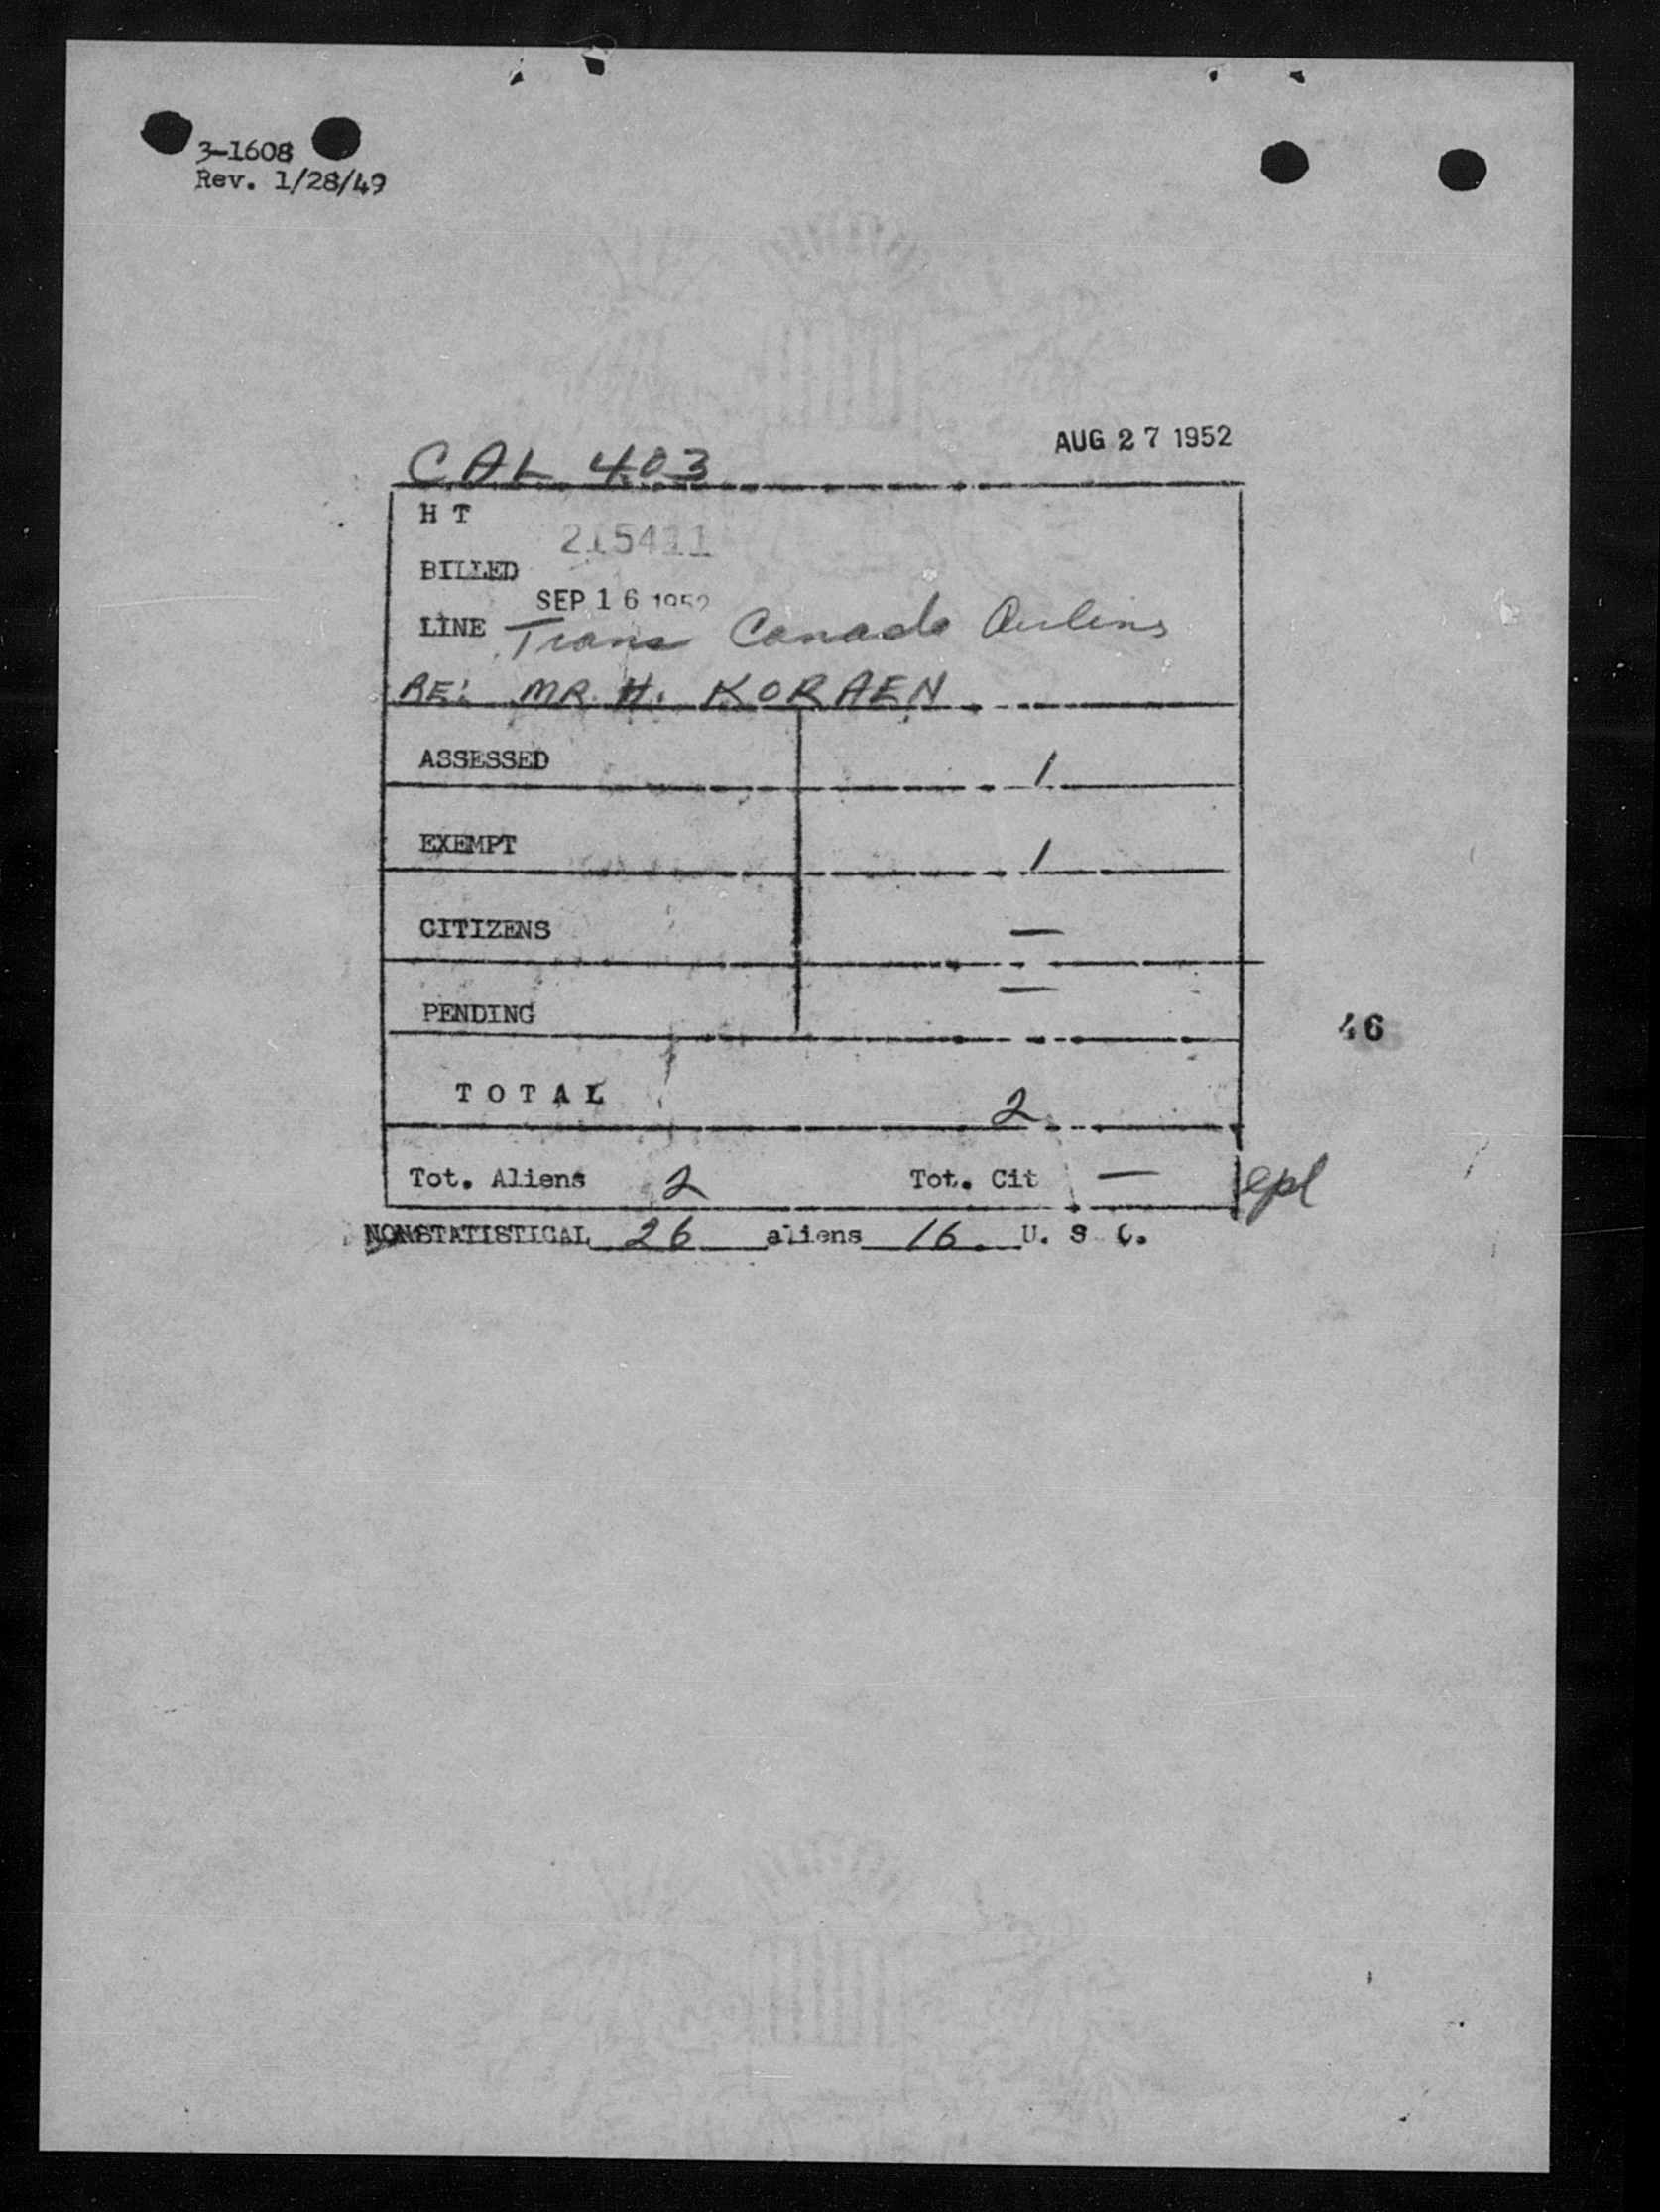 3-1608
Rev. 1/28/49
AUG 27 1952
CAL 403
H T
215411
BILLED
SEP 16 1952
LINE Trans Canada Airlines
RE: MR. H. KORAEN
ASSESSED 1
EXEMPT 1
CITIZENS —
PENDING —
46
TOTAL 2
Tot. Aliens 2 Tot. Cit —
epl
NONSTATISTICAL 26 aliens 16 U. S. C.